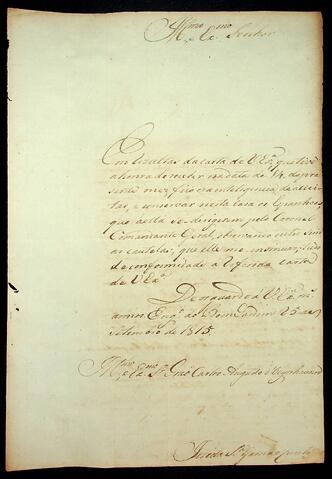 Illmo e Exmo Senhor
Em da carta de V. Exª, que tive
a honra de receber na data de 14 do pre
sente mez, fico na inteligencia de aceitar
e conservar nesta
que nella se dirigirem pelo Coronel
Comandante Geral, observando outro sim
as cautelas, que elle me insinuar, tudo
de conformidade á referida carta
de V. Exª
Deos guarde á V. Exª m.
annos Engº do Bom Jardim 25 de
Setembro de 1815.
Illmo e Exmo Sr. Gnal Carlos Augusto d'Oeynhausen